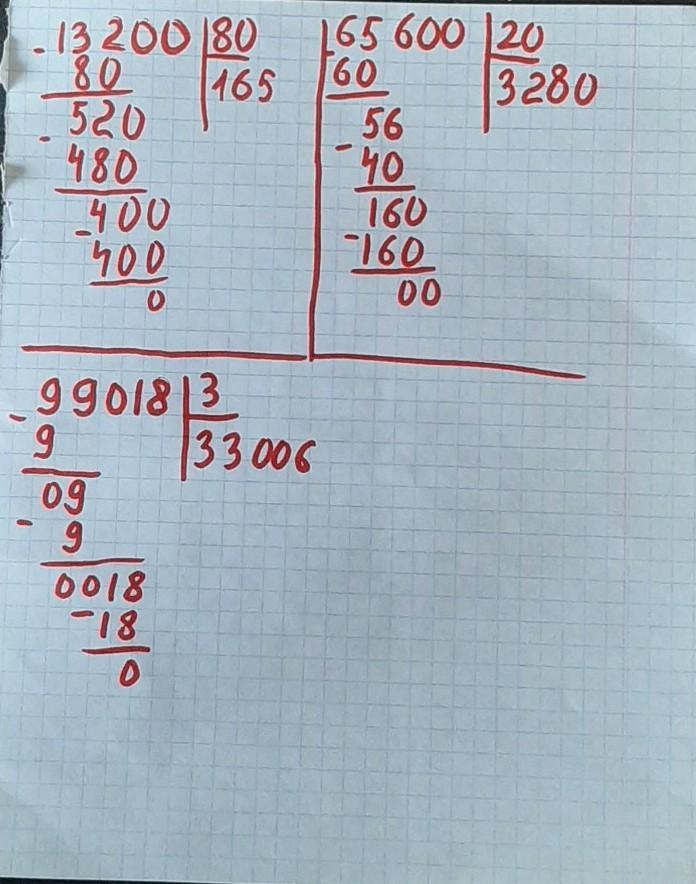 - 13200 80
80 165
520
- 480
400
- 400
0
- 65600 20
60 3280
56
- 40
160
- 160
00
- 99018 3
9 33006
09
- 9
0018
- 18
0